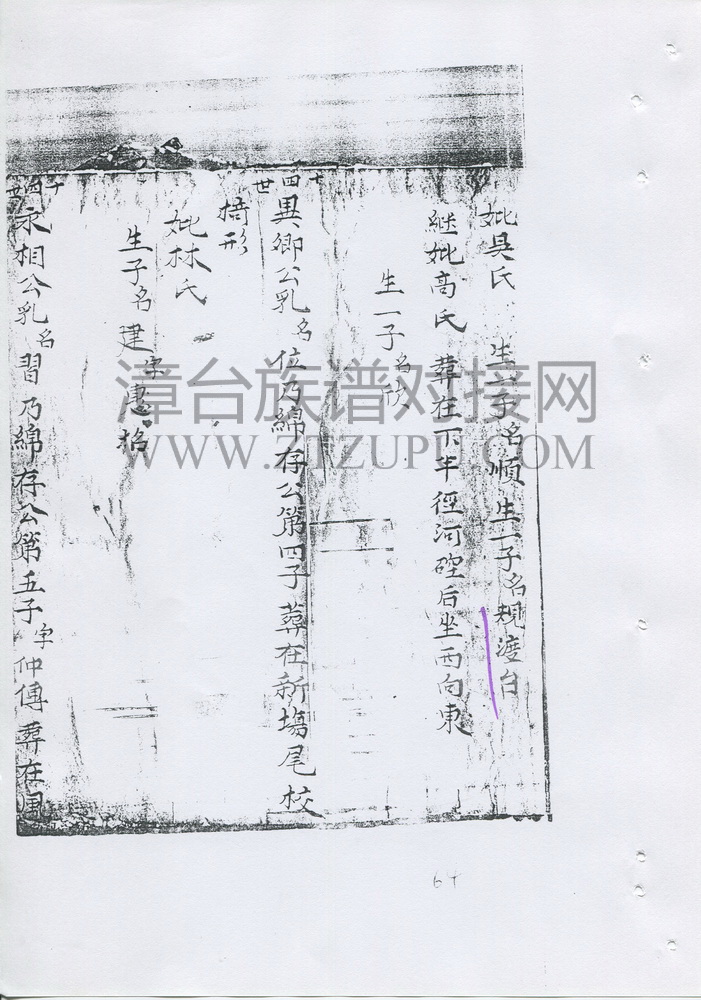 妣吳氏 生一子名順生一子名規渡台
継妣高氏 葬在下半徑河硿后坐西向東
生一子名欣
十四世
異卿公乳名位乃綿存公第四子葬在新塲尾校
椅形
妣林氏
生子名建字惠
十四世
永相公乳名習乃綿存公第五子字仲傅葬在
漳台族谱对接网
WWW.ZTZUPU.COM
64